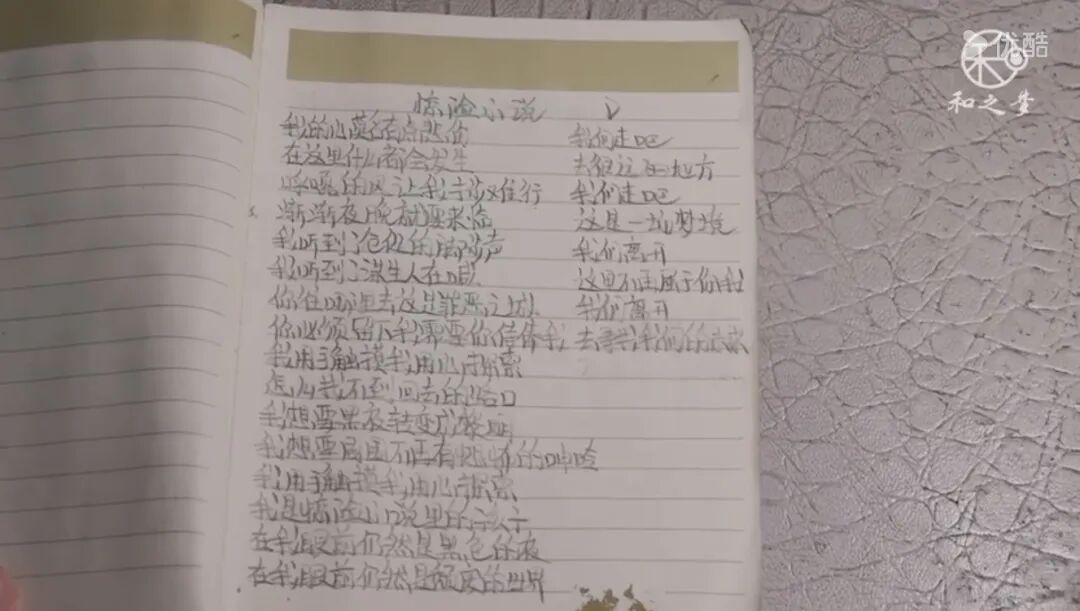 优酷
和之梦
惊险小说
我的心莫名有点悲伤
在这里什么都会发生
呼嘎的风让我寸步难行
渐渐夜晚就要来临
我听到了仓促的脚步声
我听到了陌生人在喊
你往哪里去这是罪恶之城
你必须留下我需要你陪伴我
我用手触摸我用心探索
怎么找不到回去的路口
我想要黑夜转变成黎明
我想要周围不再有恐怖的呻吟
我用手触摸我用心探索
我是惊险小说里的
在我眼前仍然是黑色的夜
在我眼前仍然是的世界
我们走吧
去很远的地方
我们走吧
这是一场梦境
我们离开
这里不再属于你我
我们离开
去寻找我们的